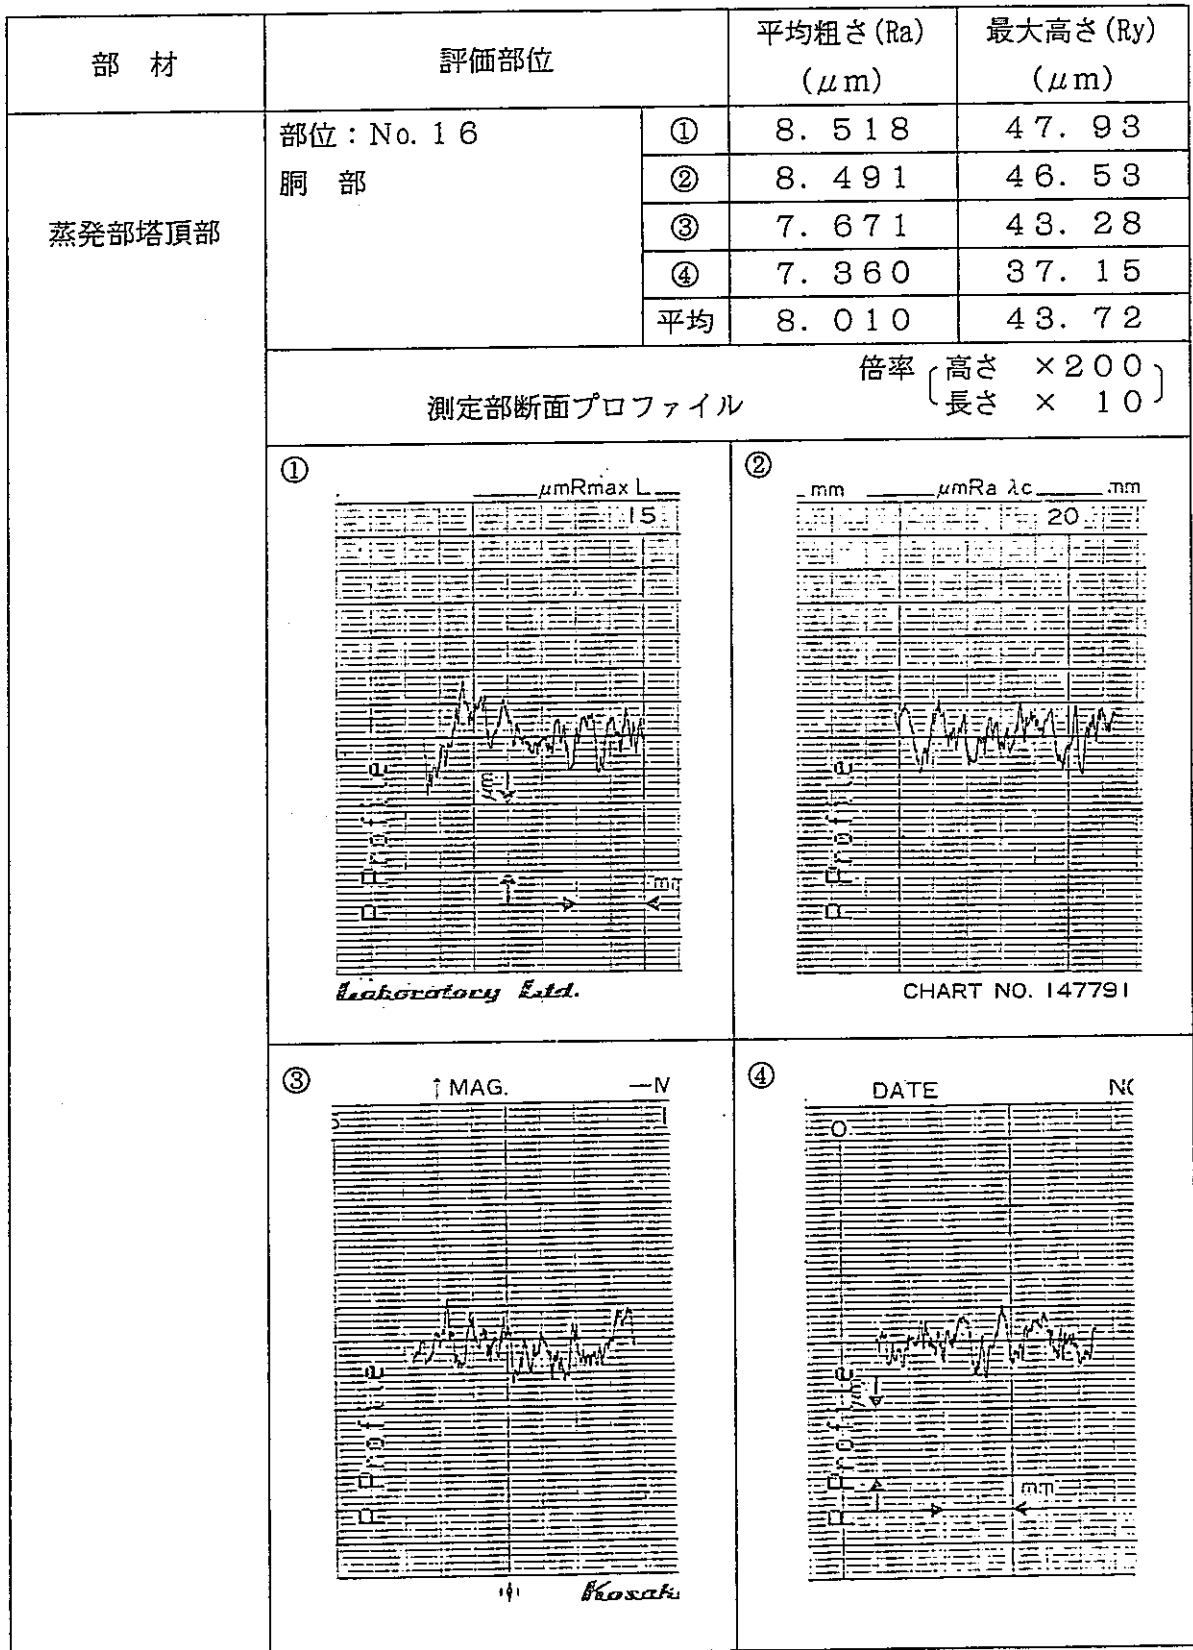 部 材 評価部位 平均粗さ(Ra) 最大高さ(Ry)
(μm) (μm)
蒸発部塔頂部
部位：No. 16
胴 部
① 8. 518 47. 93
② 8. 491 46. 53
③ 7. 671 43. 28
④ 7. 360 37. 15
平均 8. 010 43. 72
測定部断面プロファイル
倍率 高さ ×200
長さ × 10
①
μmRmax L
15
P Profile
μm
mm
Laboratory Ltd.
②
mm μmRa λc mm
20
P Profile
CHART NO. 147791
③
↑ MAG.
P Profile
Kosak
④
DATE
0
P Profile
μm
mm